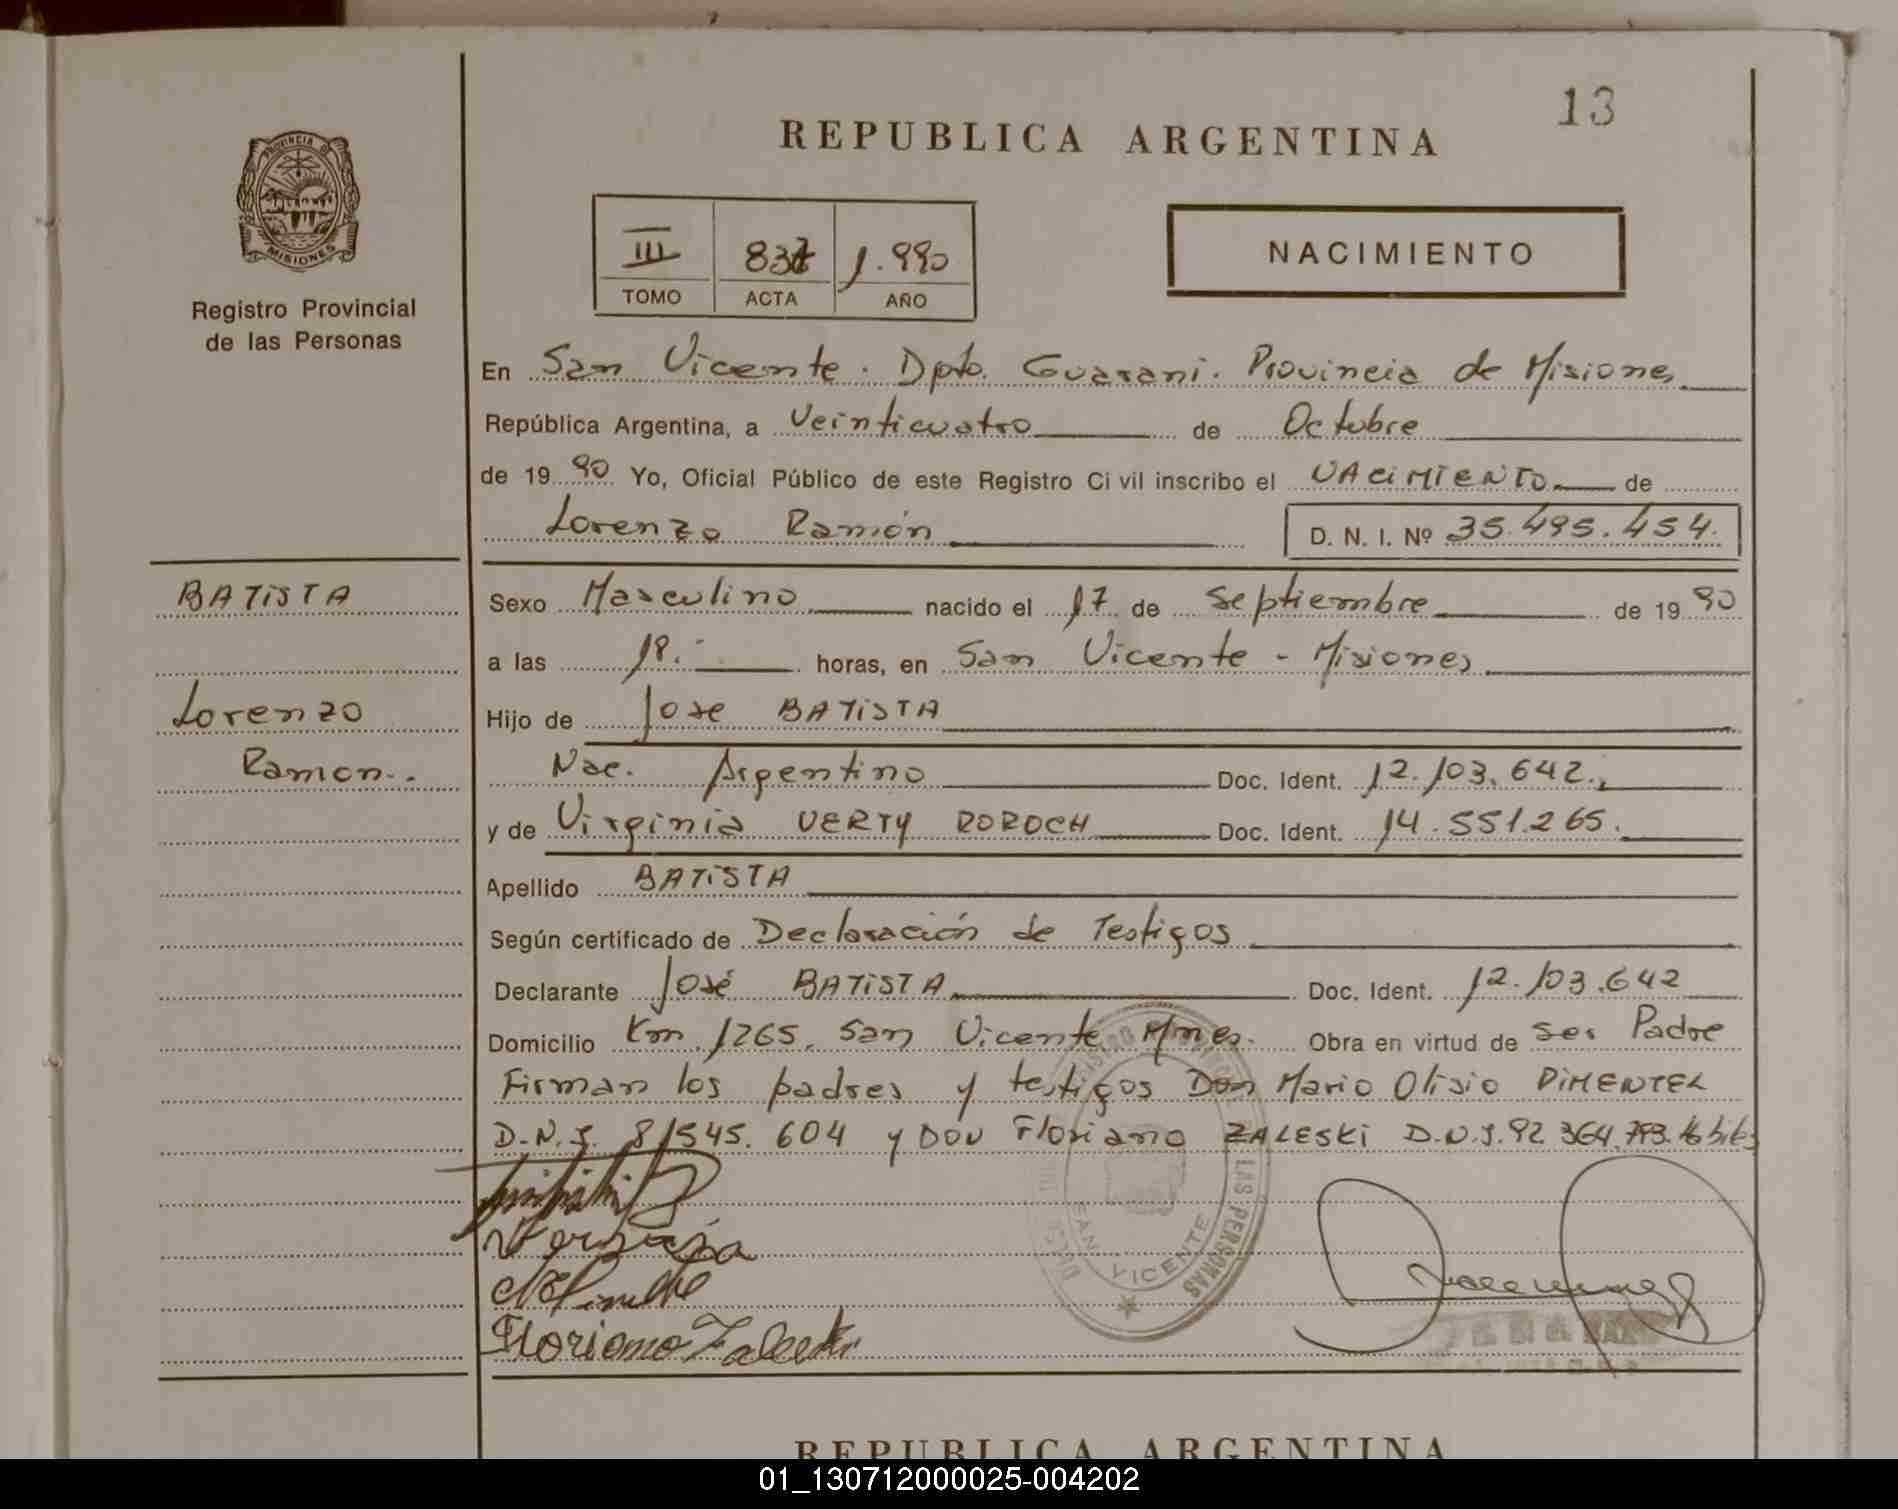 13
REPUBLICA ARGENTINA
PROVINCIA DE
MISIONES
Registro Provincial
de las Personas
III 1.990
TOMO ACTA AÑO
NACIMIENTO
En San Vicente. Dpto. Guarani. Provincia de Misiones
República Argentina, a Veinticuatro de Octubre
de 1990 Yo, Oficial Público de este Registro Civil inscribo el NACiMiENTO de
Lorenzo Ramón D. N. I. Nº 35.495.454.
BATiSTA
Sexo Masculino nacido el 17 de Septiembre de 1990
a las 18. horas, en San Vicente - Misiones
Lorenzo
Hijo de Jose BATiSTA
Ramon..
Nac. Argentino Doc. Ident. 12.103.642.
y de Virginia VERTY DOROCH Doc. Ident. 14.551.265.
Apellido BATiSTA
Según certificado de Declaración de Testigos
Declarante José BATiSTA Doc. Ident. 12.103.642
Domicilio Km. 1265. San Vicente Mnes. Obra en virtud de Ser Padre
Firman los padres y testigos Don Mario Olisio PiMENTEL
D.N.I. 8/545.604 y DON Floriano ZALESKi D.N.I. 92.364.793.
Floriano Zaleski
LAS PERSONAS
SAN VICENTE
REPUBLICA ARGENTINA
01_130712000025-004202